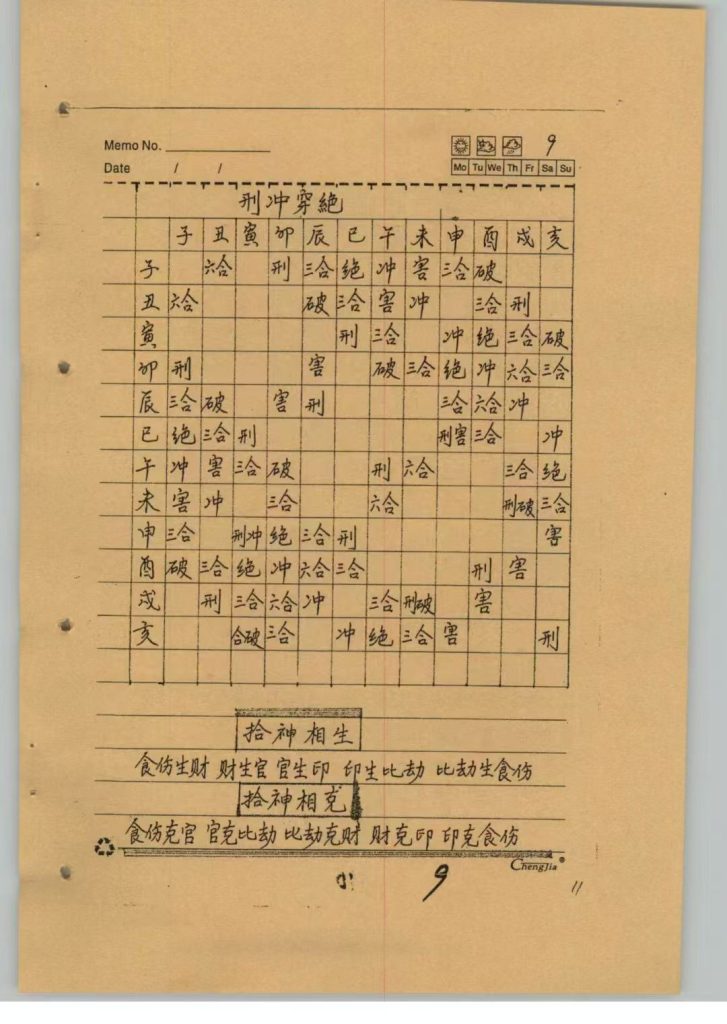 Memo No.
9
Date / /
Mo Tu We Th Fr Sa Su
刑冲穿絕
子 丑 寅 卯 辰 巳 午 未 申 酉 戌 亥
子 六合 刑 三合 绝 冲 害 三合 破
丑 六合 破 三合 害 冲 三合 刑
寅 刑 三合 冲 绝 三合 破
卯 刑 害 破 三合 绝 冲 六合 三合
辰 三合 破 害 刑 三合 六合 冲
巳 绝 三合 刑 刑害 三合 冲
午 冲 害 三合 破 刑 六合 三合 绝
未 害 冲 三合 六合 刑破 三合
申 三合 刑冲 绝 三合 刑 害
酉 破 三合 绝 冲 六合 三合 刑 害
戌 刑 三合 六合 冲 三合 刑破 害
亥 合破 三合 冲 绝 三合 害 刑
拾神相生
食伤生财 财生官 官生印 印生比劫 比劫生食伤
拾神相克
食伤克官 官克比劫 比劫克财 财克印 印克食伤
ChengJia
9
11